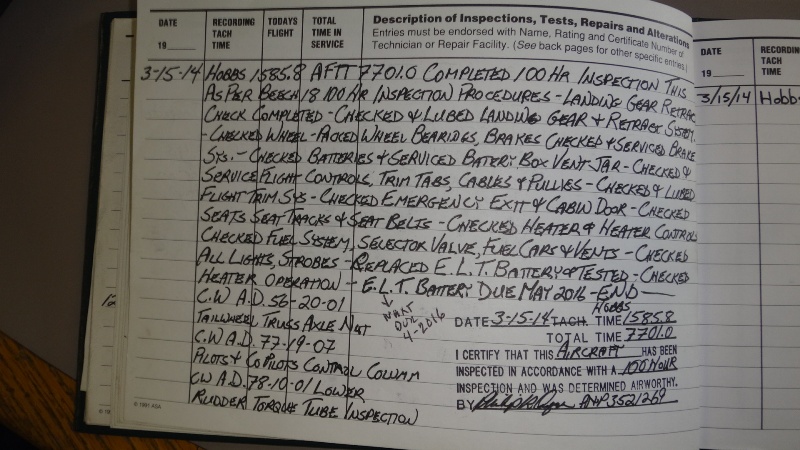 DATE
19
RECORDING TACH TIME
TODAYS FLIGHT
TOTAL TIME IN SERVICE
Description of Inspections, Tests, Repairs and Alterations
Entries must be endorsed with Name, Rating and Certificate Number of
Technician or Repair Facility. (See back pages for other specific entries.)
3-15-14 HOBBS 1585.8 AFTT 7701.0 COMPLETED 100 HR INSPECTION THIS
AS PER BEECH 18 100 HR INSPECTION PROCEDURES - LANDING GEAR RETRAC
CHECK COMPLETED - CHECKED & LUBED LANDING GEAR & RETRACT SYSTEM.
- CHECKED WHEEL - PACKED WHEEL BEARINGS, BRAKES CHECKED & SERVICED BRAKE
SYS. - CHECKED BATTERIES & SERVICED BATTERY BOX VENT JAR - CHECKED &
SERVICE FLIGHT CONTROLS, TRIM TABS, CABLES & PULLIES - CHECKED & LUBED
FLIGHT TRIM SYS - CHECKED EMERGENCY EXIT & CABIN DOOR - CHECKED
SEATS SEAT TRACKS & SEAT BELTS - CHECKED HEATER & HEATER CONTROLS
CHECKED FUEL SYSTEM, SELECTOR VALVE, FUEL CAPS & VENTS - CHECKED
ALL LIGHTS, STROBES - REPLACED E.L.T. BATTERY & TESTED - CHECKED
HEATER OPERATION - E.L.T. BATTERY DUE MAY 2016 - END
C.W A.D. 56-20-01
TAILWHEEL TRUSS AXLE NUT
C.W A.D. 77-19-07
PILOTS & COPILOTS CONTROL COLUMN
C.W A.D. 78-10-01 LOWER
RUDDER TORQUE TUBE INSPECTION
DUE
4-2016
HOBBS
DATE 3-15-14 TACH. TIME 1585.8
TOTAL TIME 7701.0
I CERTIFY THAT THIS AIRCRAFT HAS BEEN
INSPECTED IN ACCORDANCE WITH A 100 HOUR
INSPECTION AND WAS DETERMINED AIRWORTHY.
BY A&P 3521269
© 1991 ASA
DATE
19
RECORDIN
TACH
TIME
3/15/14 Hobb